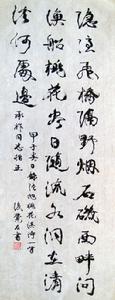 隱隱飛橋隔野烟石磯西畔問
漁船桃花盡日隨流水洞在清
溪何處邊
甲子日錄張旭桃花溪詩一首
承同志指正
書